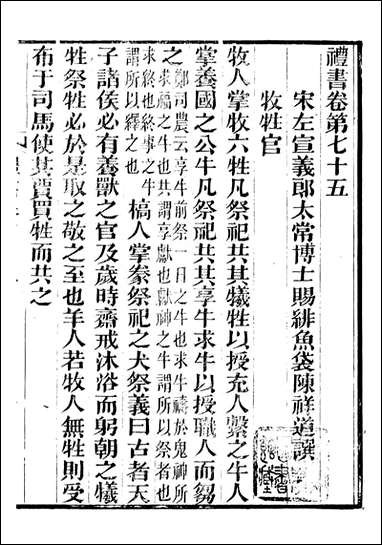 禮書卷第七十五
宋左宣義郎太常博士賜緋魚袋陳祥道譔
牧牲官
牧人掌牧六牲凡祭祀共其犧牲以授充人繫之牛人
掌養國之公牛凡祭祀共其享牛求牛以授職人而芻
之鄭司農云享牛前祭一日之牛也求牛禱於鬼神所
求福之牛也共謂享獻也獻神之牛謂所以祭者也
求終也終事之牛
所以繹之也
槁人掌豢祭祀之犬祭義曰古者天
子諸侯必有養獸之官及歲時齋戒沐浴而躬朝之犧
牷祭牲必於是取之敬之至也羊人若牧人無牲則受
布于司馬使其賈買牲而共之